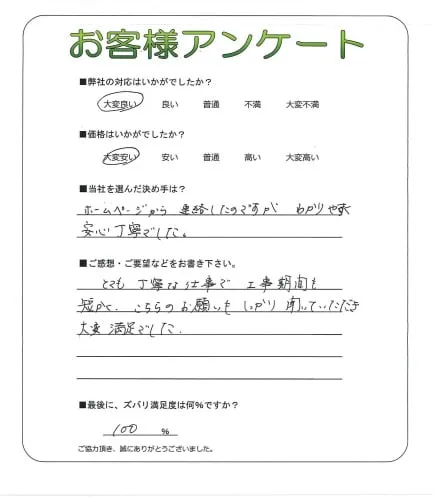 お客様アンケート
■弊社の対応はいかがでしたか？
大変良い 良い 普通 不満 大変不満
■価格はいかがでしたか？
大変安い 安い 普通 高い 大変高い
■当社を選んだ決め手は？
ホームページから 連絡したのですが わかりやすく
安心丁寧でした。
■ご感想・ご要望などをお書き下さい。
とても 丁寧な仕事で 工事期間も
短かく、こちらのお願いも しっかり 聞いていただき
大変 満足でした。
■最後に、ズバリ満足度は何%ですか？
100 %
ご協力頂き、誠にありがとうございました。